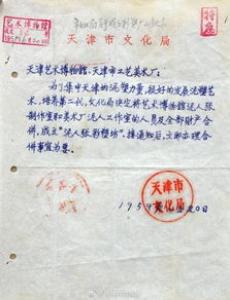 艺术博物馆
特急
天津市文化局
天津艺术博物馆、天津市工艺美术厂:
为了集中天津的泥塑力量,很好的发展泥塑艺
术,培养第二代,文化局决定将艺术博物馆泥人张
制作室和美术厂泥人工作室的人员及全部财产合
併,成立“泥人张彩塑坊”。接通知后,立即办理合
併事宜为要。
天津市
文化局
195 年 月 0日